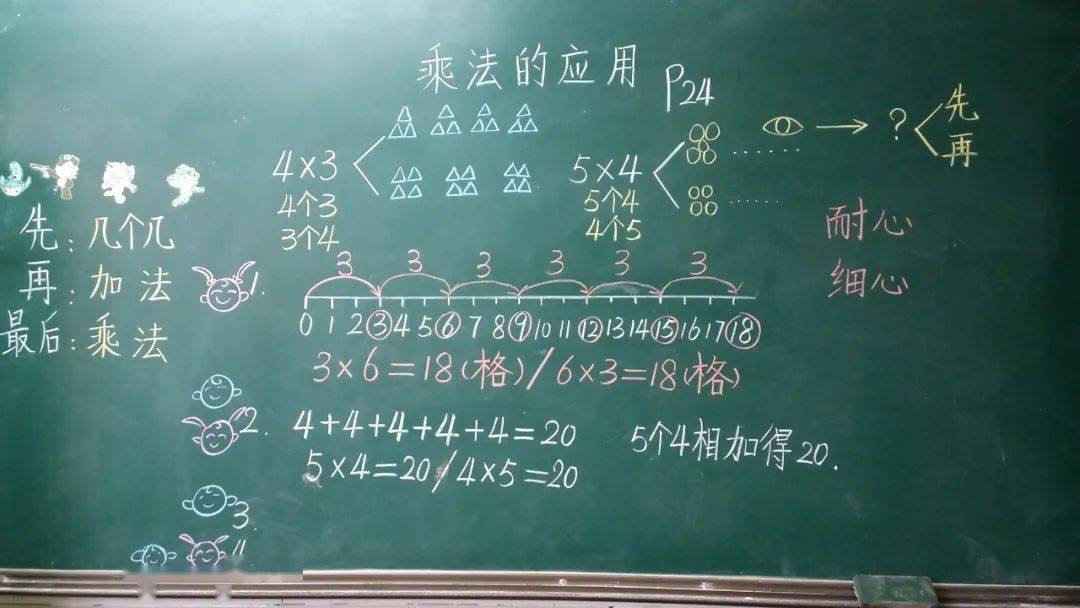 乘法的应用 P24
4×3
4个3
3个4
5×4
5个4
4个5
……
……
→ ?
先
再
耐心
细心
先:几个几
再:加法
最后:乘法
1.
3 3 3 3 3 3
0 1 2 ③ 4 5 ⑥ 7 8 ⑨ 10 11 ⑫ 13 14 ⑮ 16 17 ⑱
3×6=18(格)/6×3=18(格)
2. 4+4+4+4+4=20 5个4相加得20.
5×4=20/4×5=20
3.